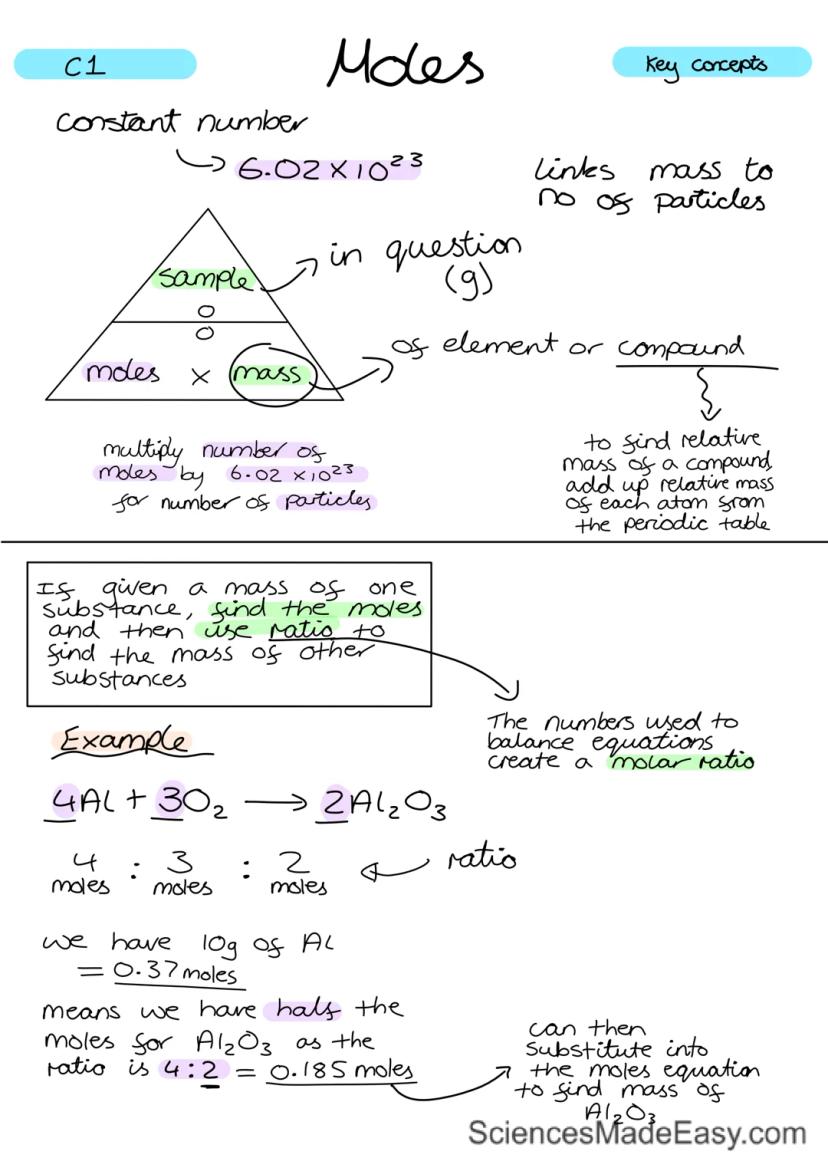 C1
Moles
Key concepts
constant number
6.02 × 10²³
links mass to
no of particles
sample
in question
(g)
moles × mass
of element or compound
multiply number of
moles by 6.02 × 10²³
for number of particles
to find relative
mass of a compound,
add up relative mass
of each atom from
the periodic table
If given a mass of one
substance, find the moles
and then use ratio to
find the mass of other
substances
The numbers used to
balance equations
create a molar ratio
Example
4Al + 3O₂ → 2Al₂O₃
4 : 3 : 2
moles moles moles
ratio
we have 10g of Al
= 0.37 moles
means we have half the
moles for Al₂O₃ as the
ratio is 4:2 = 0.185 moles
can then
substitute into
the moles equation
to find mass of
Al₂O₃
SciencesMadeEasy.com